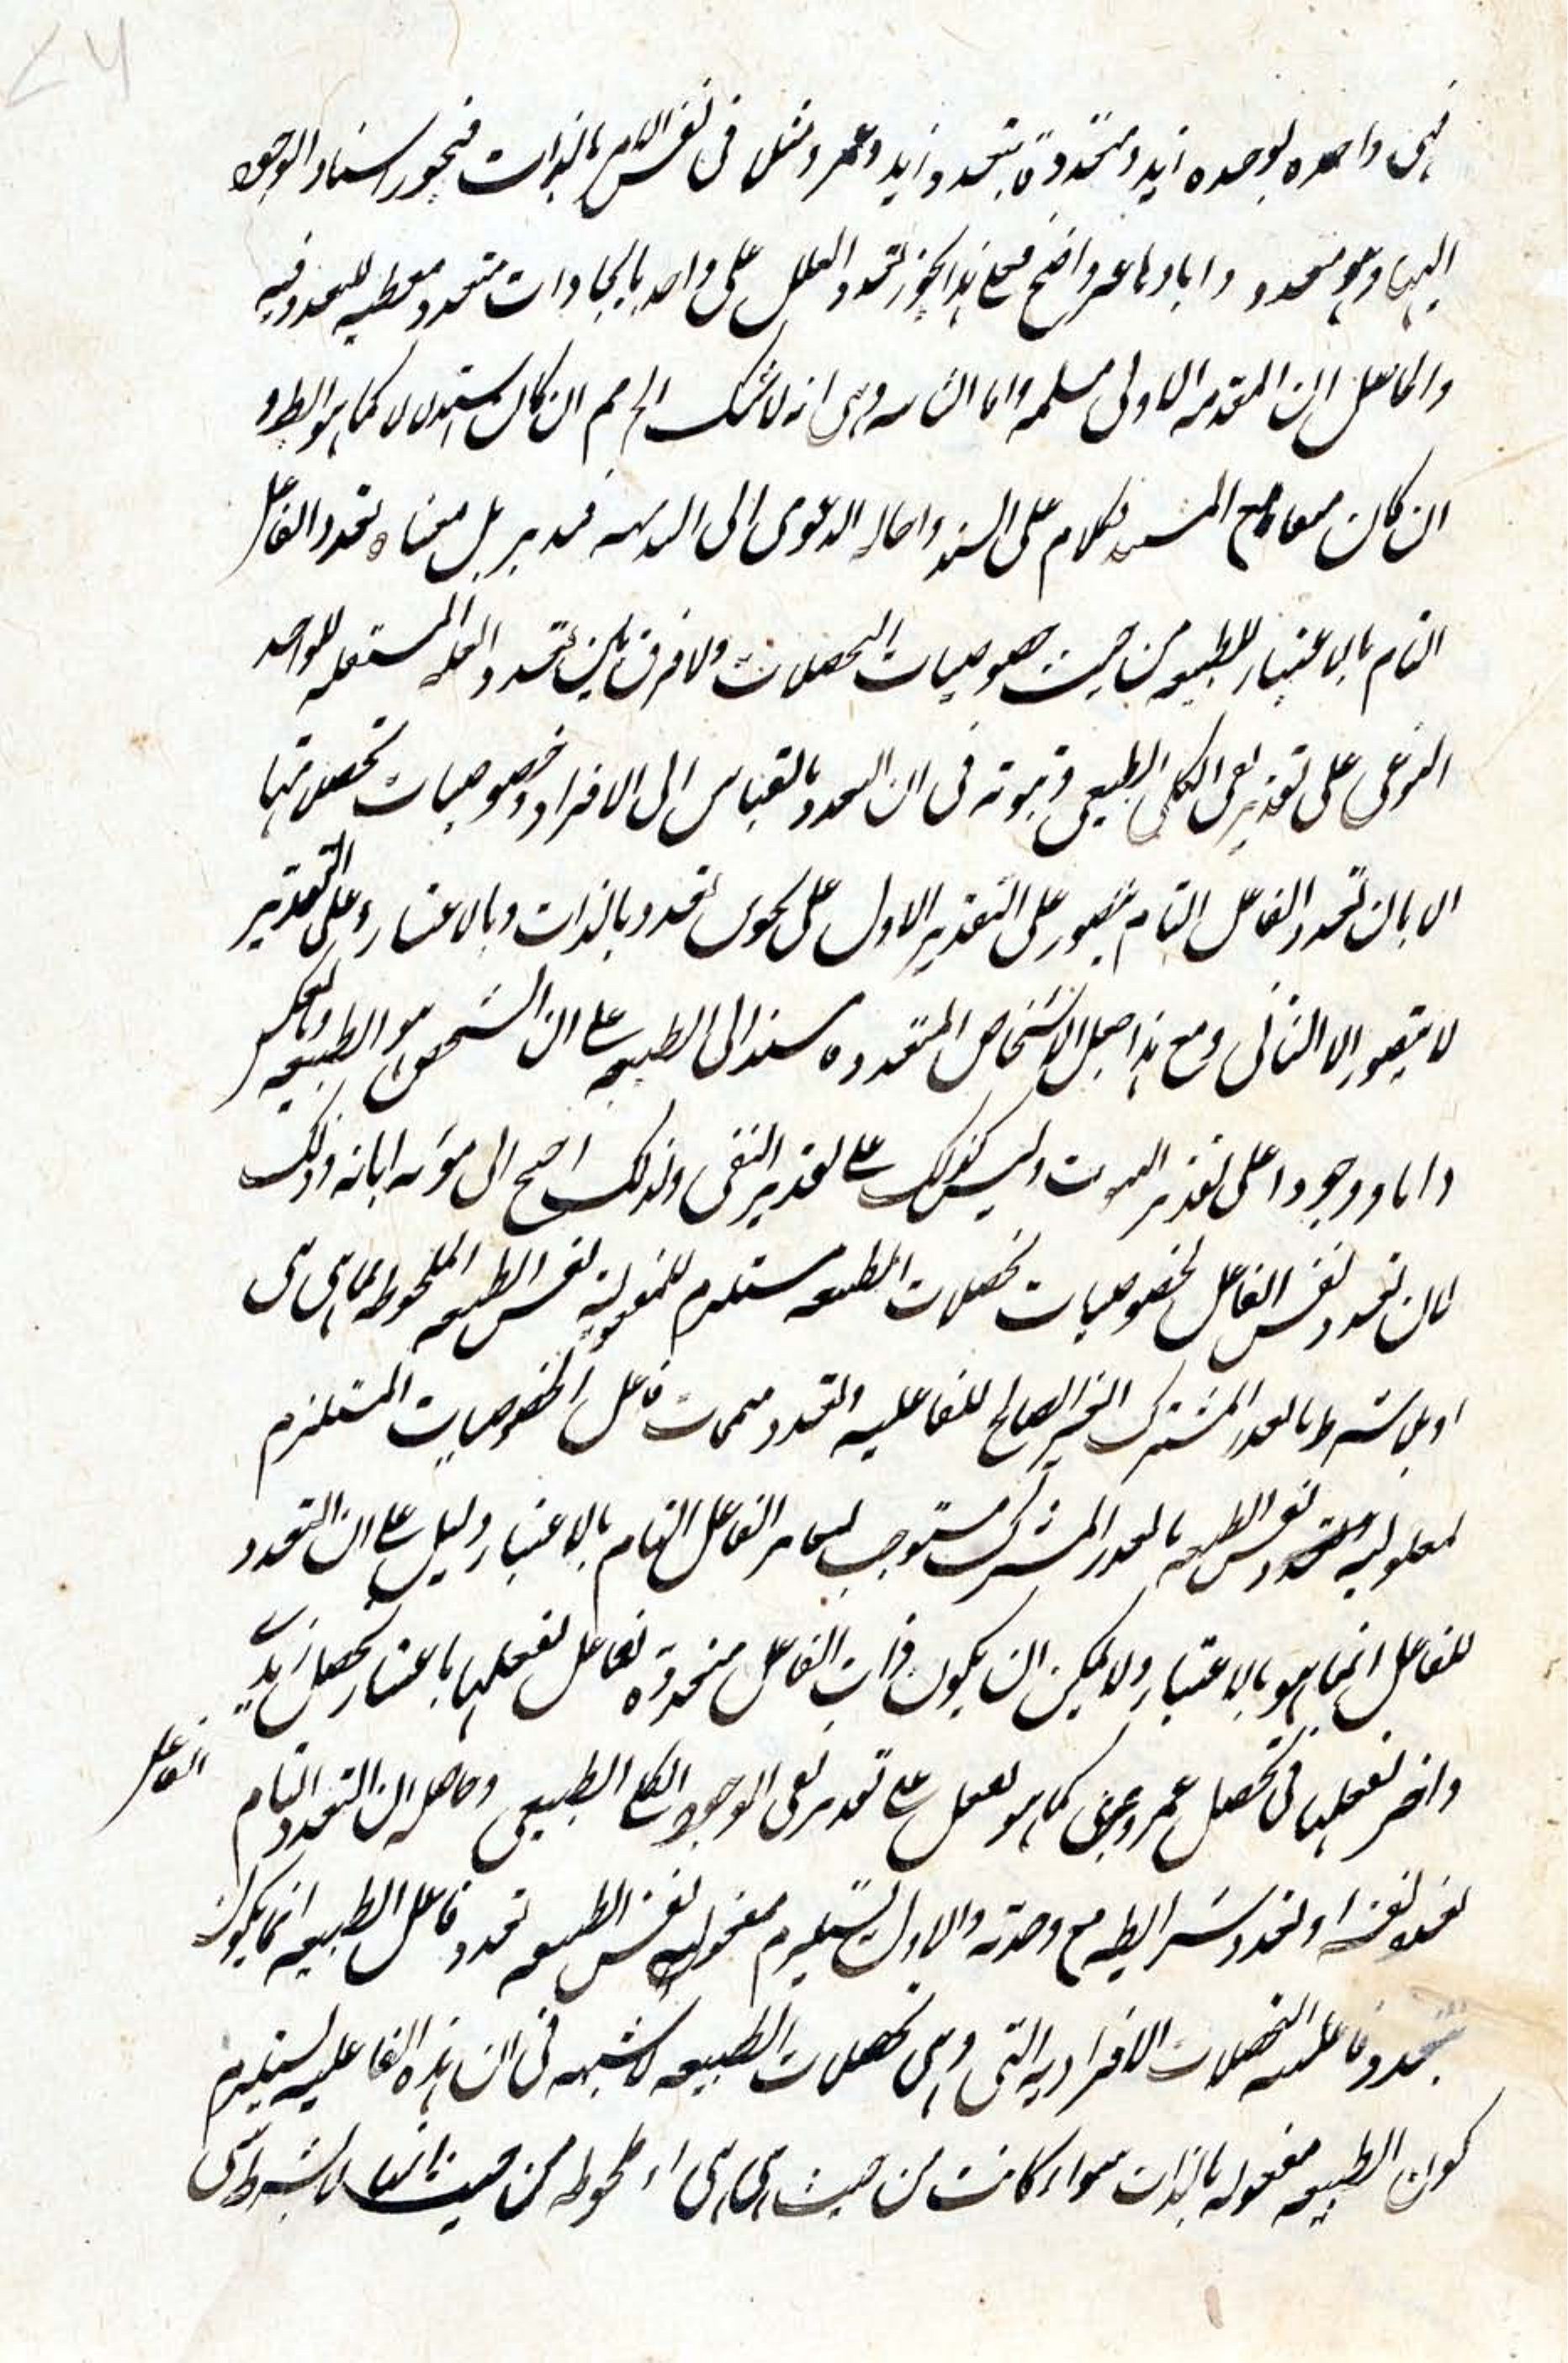 فهى واحده بوحده زيد ومتعددة بتعدد زيد وعمرو مثلا فى نفس الامر بالذات فيجوز اسناد الوجود
اليها وهو متعدد واباؤها غير واضح فعلى هذا يجوز تعدد العلل على واحد بايجادات متعدد معطيه للتعدد فيه
والحاصل ان المقدمه الاولى مسلمه واما الثانيه وهى انه لا شك الخ مم ان كان استدلالا كما هو الظ و
ان كان منعا مع السند فكلام على السند واحاله الدعوى الى البديهه فتدبر بل معناه تعدد الفاعل
التام بالاعتبار للطبيعه من حيث خصوصيات التحصلات ولا فرق بين تعدد العله المستقله للواحد
النوعى على تقدير نفى الكلى الطبيعى وثبوته فى ان التعدد بالقياس الى الافراد وخصوصيات تحصلاتها
الا بان تعدد الفاعل التام متصور على التقدير الاول على نحوى تعدد بالذات وبالاعتبار وعلى التقدير
لا يتصور الا الثانى ومع هذا جعل الاشخاص المتعدده مسندا الى الطبيعه على ان الشخص هو الطبيعه وبالعكس
ذاتا ووجودا على تقدير الثبوت وليس كذلك على تقدير النفى ولذلك احتيج الى مؤنه ابانه وذلك
لان تعدد نفس الفاعل لخصوصيات تحصلات الطبيعه مستلزم للمفعوليه نفس الطبيعه الملحوظه بما هى هى
او بلا شرط بالقدر المشترك الغير الصالح للفاعليه والتعدد متممات فاعل الخصوصيات المستلزم
لمعلوليه نفس الطبيعه بالقدر المشترك مستوجب لتغاير الفاعل التام بالاعتبار دليل على ان التعدد
للفاعل انما هو بالاعتبار ولا يمكن ان يكون ذات الفاعل متعددة فاعل لفعلها باعتبار تحصل زيد
واخر لفعلها فى تحصل عمرو كما هو يعقل على تقدير نفى الوجود الكلى الطبيعى وحاصله ان التعدد التام
الفاعل
تعدد نفسه او تعدد شرايطه مع وحدته والاول يستلزم مفعوليه نفس الطبيعه تعدد فاعل الطبيعه انما يكون
بتعدد فاعليه التحصلات الافراديه التى وهى تحصلات الطبيعه لا شبهه فى ان هذه الفاعليه يستلزم
كون الطبيعه مفعوله بالذات سواء كانت من حيث هى هى او ملحوظه من حيث انها لا بشرط شى